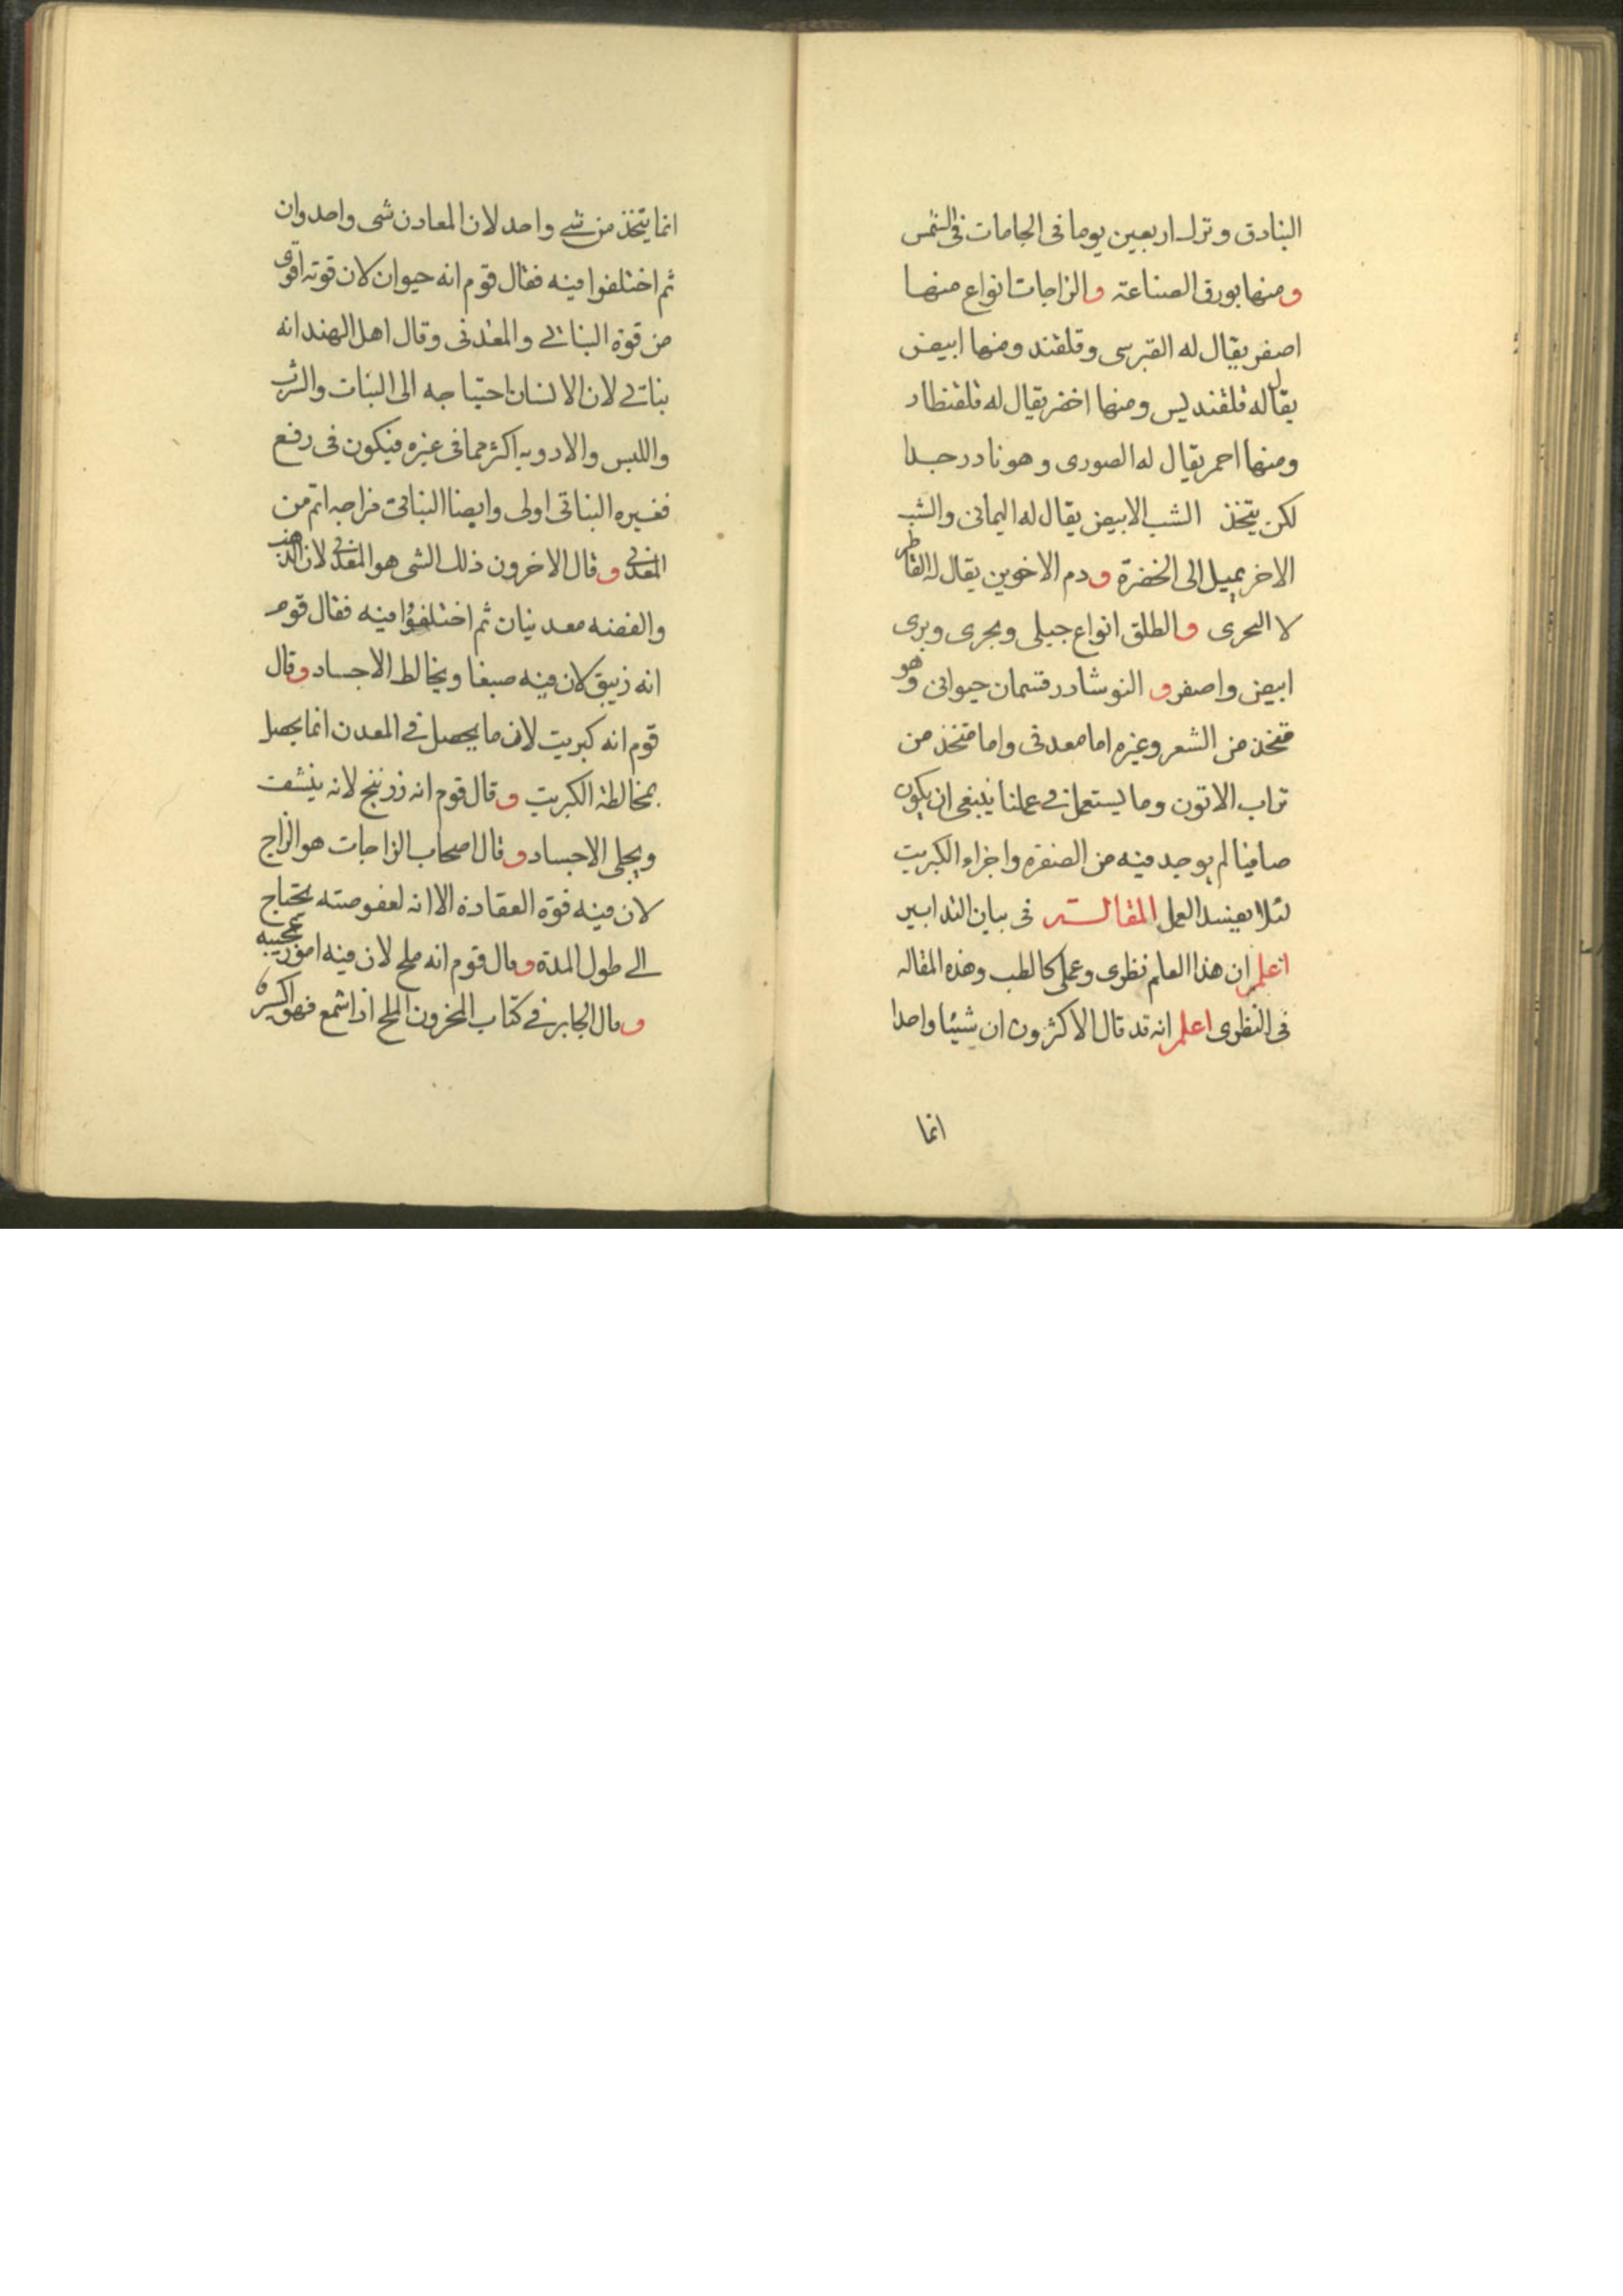 البنادق وترك اربعين يوما فى الجامات فى الشمس
ومنها بورق الصناعة والزاجات انواع منها
اصفر يقال له القبرسى وقلقند ومنها ابيض
يقال له قلقنديس ومنها اخضر يقال له قلقنطار
ومنها احمر يقال له الصورى وهو نادر جدا
لكن يتخذ الشب الابيض يقال له اليمانى والشب
الاخر يميل الى الخضرة ودم الاخوين يقال له القاطر
لا البحرى والطلق انواع جبلى وبحرى وبرى
ابيض واصفر والنوشادر قسمان حيوانى وهو
متخذ من الشعر وغيره اما معدنى واما متخذ من
تراب الاتون وما يستعمل فى عملنا ينبغى ان يكون
صافيا لم يوجد فيه من الصفرة واجزاء الكبريت
لئلا يفسد العمل المقالة فى بيان التدابير
اعلم ان هذا العلم نظرى وعملى كالطب وهذه المقاله
فى النظرى اعلم انه قد قال الاكثرون ان شيئا واحدا
انما
انما يتخذ من شى واحد لان المعادن شى واحد وان
ثم اختلفوا فيه فقال قوم انه حيوان لان قوته اقوى
من قوة النباتى والمعدنى وقال اهل الهند انه
نباتى لان الانسان احتياجه الى النبات والشرب
واللبس والادويه اكثر مما فى غيره فيكون فى رفع
فغيره النباتى اولى وايضا النباتى مزاجه اتم من
المعدنى وقال الاخرون ذلك الشى هو المعدنى لان الذهب
والفضه معدنيان ثم اختلفوا فيه فقال قوم
انه زيبق لان فيه صبغا ويخالط الاجساد وقال
قوم انه كبريت لان ما يحصل فى المعدن انما يحصل
بمخالطة الكبريت وقال قوم انه زرنيخ لانه ينشف
ويجلى الاجساد وقال اصحاب الزاجات هو الزاج
لان فيه قوة العقادة الا انه لعفوصته يحتاج
الى طول المدة وقال قوم انه ملح لان فيه امور عجيبه
وقال الجابر فى كتاب المخزون الملح اذا شمع فهو اكسير